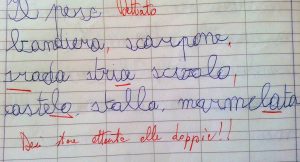 Il pese dettato
bandiera, scarpone,
stria
castelo stalla, marmelata
Devi stare attento alle doppie!!